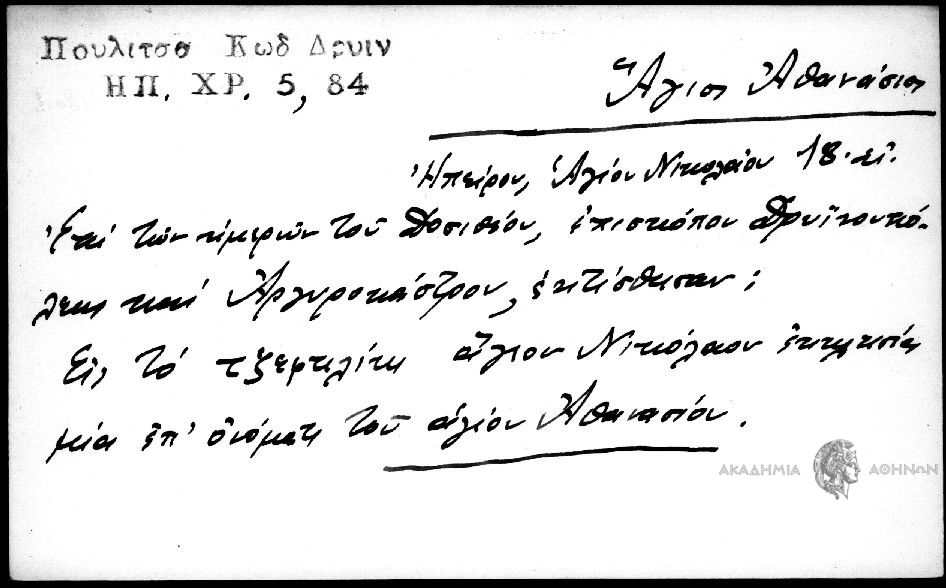 Πουλιτσα Κωδ Δρυιν
ΗΠ. ΧΡ. 5, 84
Ἅγιος Ἀθανάσιος
Ἠπείρου, Ἁγίου Νικολάου 18. αἰ.
Ἐπί τῶν ἡμερῶν τοῦ Δοσιθέου, ἐπισκόπου Δρυϊνουπό-
λεως καί Ἀργυροκάστρου, ἐκτίσθησαν:
Εἰς τό τζεφτλίκι ἅγιον Νικόλαον ἐκκλησία
μία ἐπ' ὀνόματι τοῦ ἁγίου Ἀθανασίου.
ΑΚΑΔΗΜΙΑ ΑΘΗΝΩΝ